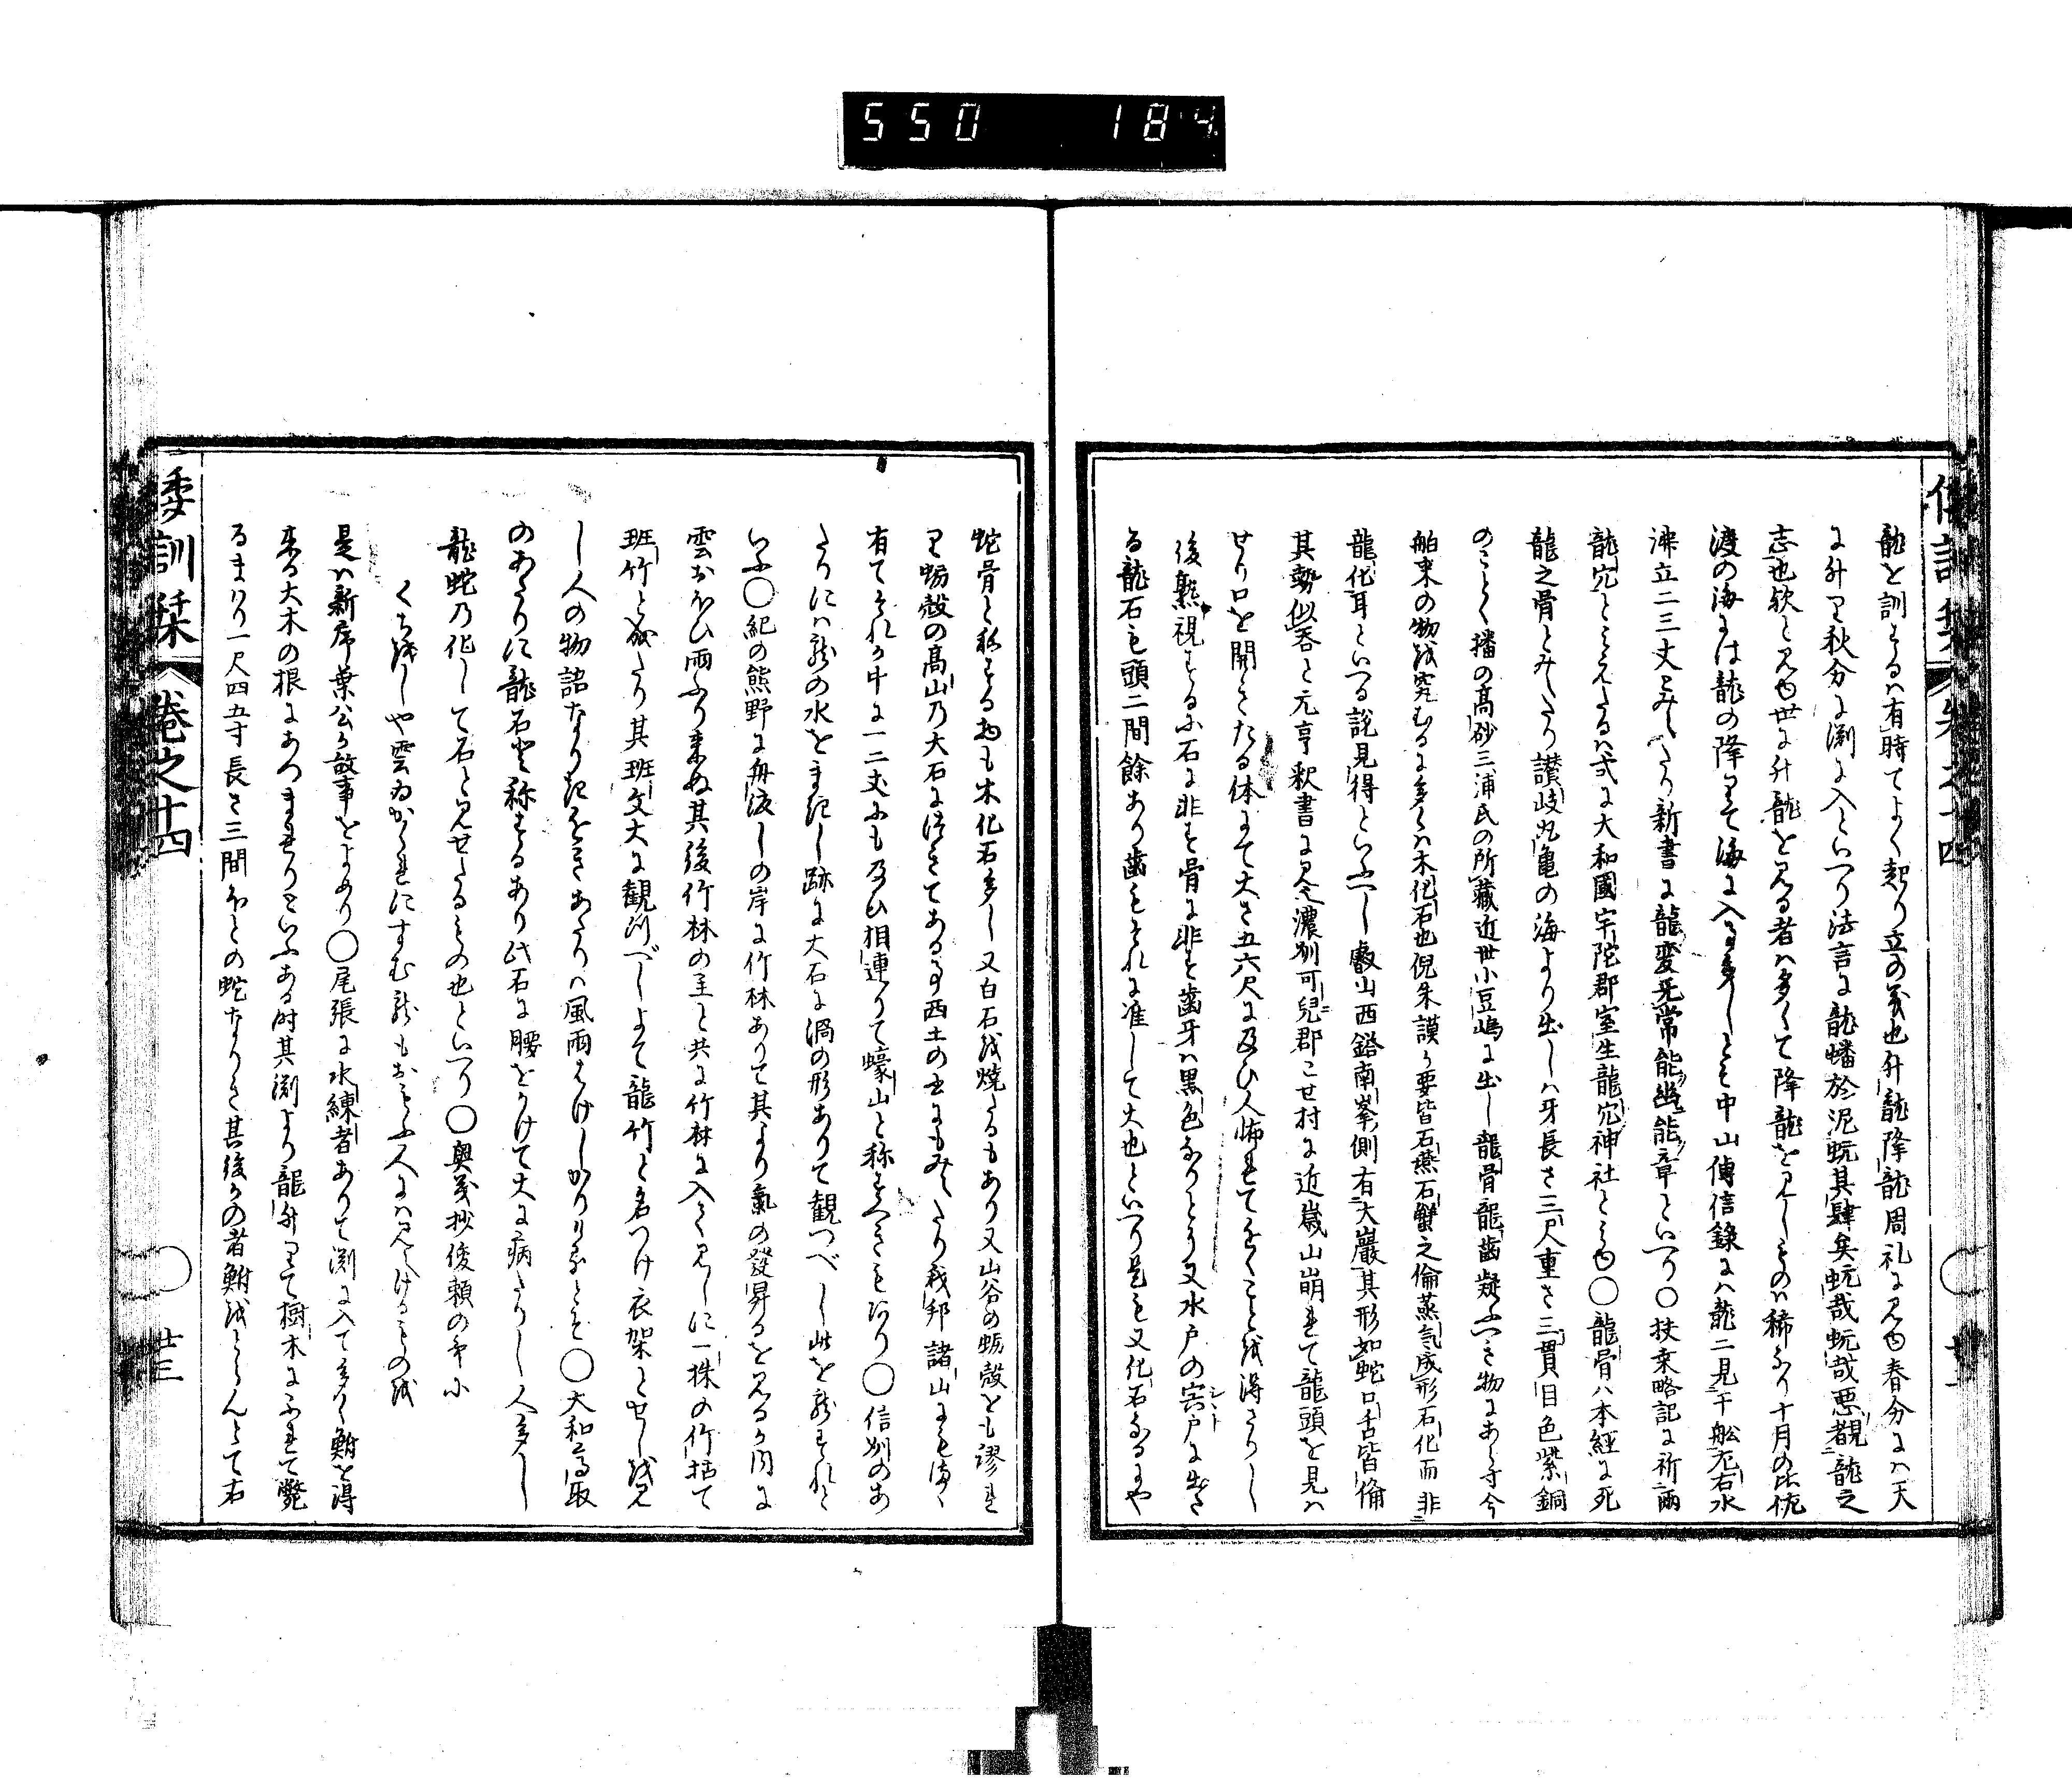 550 184
龍を訓するは有時てよく起り立の義也升龍降龍周礼に見ゆ春分には天
に升り秋分に淵に入といへり法言に龍蟠於泥蚖其肆矣蚖哉蚖哉悪覩龍之
志也歟と見ゆ世に升龍を見る者は多くて降龍を見しものは稀なり十月の比佐
渡の海には龍の降りて海に入る事多しとそ中山傳信錄には龍二見于舩左右水
沸立二三丈とみえたり新書に龍変无常能幽能章といへり〇扶桒略記に祈雨
龍穴とみえたるは式に大和國宇陀郡室生龍穴神社とみゆ〇龍骨ハ本經に死
龍之骨とみえたり讃岐丸亀の海より出しは牙長さ三尺重さ三貫目色紫銅
のことく播の髙砂三浦氏の所藏近世小豆嶋に出し龍骨龍齒疑ふへき物にあらす今
舶来の物を究むるに多くは木化石也倪朱謨か要皆石燕石蟹之倫蒸氣成形石化而非
龍化耳といへる説見得といふへし叡山西谿南峯側有大巖其形如蛇口舌皆備
其勢似呑と元亨釈書に見え濃州可兒郡こせ村に近歳山崩れて龍頭を見は
せり口を開きたる体にて大さ五六尺に及ひ人怖れてちかくことを得さりし
後熟視するに石に非す骨に非す齒牙は黒色なりとそ又水戸の宍戸に出さ
る龍石も頭二間餘あり齒もそれに准して大也といへり是も又化石なるにや
蛇骨と称する物も木化石多し又白石を焼たるもあり又山谷の蛎殻をも謬れ
り蛎殻の髙山乃大石に付きてある事西土の書にもみえたり我邦諸山にも侭
有てそれか中に一二丈にも及ひ相連りて蠔山と称すへきもあり〇信州のあ
たりには龍の水をまきし跡に大石に渦の形ありて観つべし此を龍すれと
いふ〇紀の熊野に舟渡しの岸に竹林ありて其より氣の發昇るを見るか内に
雲おほひ雨ふり来ぬ其後竹林の主と共に竹林に入て見しに一株の竹枯て
班竹と成たり其班文大に観つべしよて龍竹と名つけ衣架とせしを見
し人の物語なり
のあたりに龍石と称するあり此石に腰をかけて大に病たりし人多し
龍蛇乃化して石と見せたるもの也といへり〇奥義抄俊頼の哥に
くちをしや雲ゐかくれにすむ龍もおもふ人には見えけるものを
是は新序葉公か故事をよめり〇尾張に水練者ありて淵に入て多く鮒を得
来る大木の根にあつまれりといふある時其淵より龍升りて樹木にふれて斃
るまはり一尺四五寸長さ三間ほとの蛇なりき其後かの者鮒をとらんとて右
倭訓栞 卷之十四 廿三